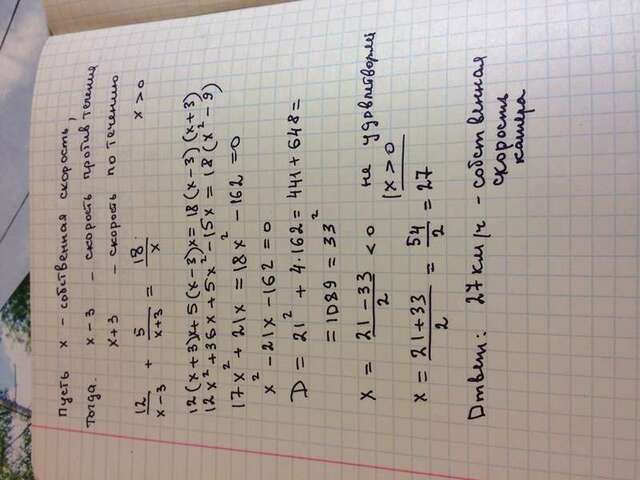 Пусть x - собственная скорость,
тогда x-3 - скорость против течения
x+3 - скорость по течению
12/(x-3) + 5/(x+3) = 18/x x>0
12(x+3)x+5(x-3)x=18(x-3)(x+3)
12x²+36x+5x²-15x=18(x²-9)
17x²+21x=18x²-162=0
x²-21x-162=0
D = 21²+4·162=441+648=
=1089=33²
x = (21-33)/2 <0 не удовлетворяет
|x>0
x = (21+33)/2 = 54/2 = 27
Ответ: 27км/ч - собственная
скорость
катера